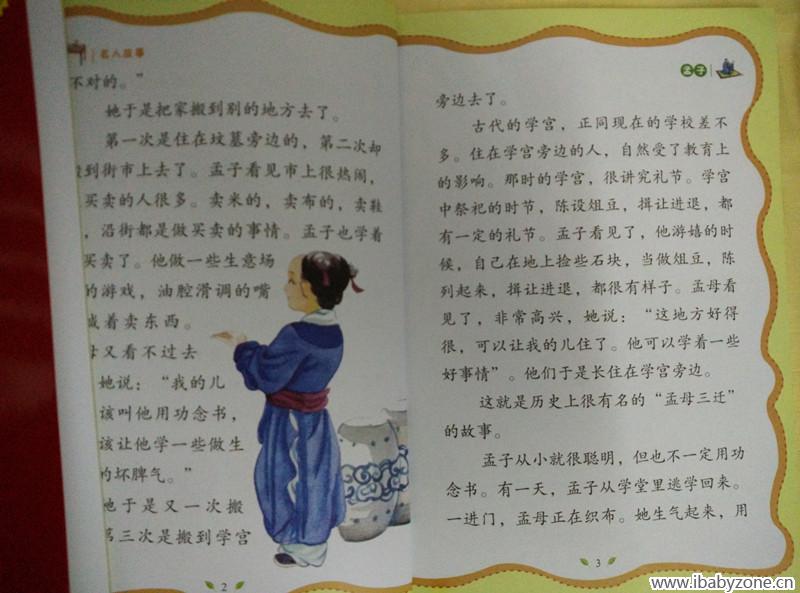 名人故事
不对的。”
她于是把家搬到别的地方去了。
第一次是住在坟墓旁边的，第二次却
到街市上去了。孟子看见市上很热闹，
买卖的人很多。卖米的，卖布的，卖鞋
，沿街都是做买卖的事情。孟子也学着
买卖了。他做一些生意场
的游戏，油腔滑调的嘴
喊着卖东西。
母又看不过去
她说：“我的儿
该叫他用功念书，
该让他学一些做生
的坏脾气。”
她于是又一次搬
第三次是搬到学宫
2
孟子
旁边去了。
古代的学宫，正同现在的学校差不
多。住在学宫旁边的人，自然受了教育上
的影响。那时的学宫，很讲究礼节。学宫
中祭祀的时节，陈设俎豆，揖让进退，都
有一定的礼节。孟子看见了，他游嬉的时
候，自己在地上捡些石块，当做俎豆，陈
列起来，揖让进退，都很有样子。孟母看
见了，非常高兴，她说：“这地方好得
很，可以让我的儿住了。他可以学着一些
好事情”。他们于是长住在学宫旁边。
这就是历史上很有名的“孟母三迁”
的故事。
孟子从小就很聪明，但也不一定用功
念书。有一天，孟子从学堂里逃学回来。
一进门，孟母正在织布。她生气起来，用
3
www.ibabyzone.cn